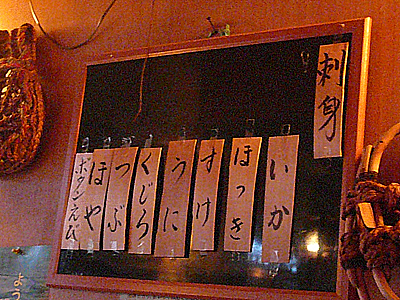 刺身
いか
ほっき
すけ
うに
くじら
つぶ
ほや
ボタンえび